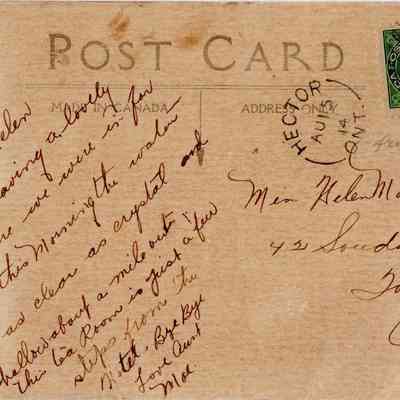 POST CARD
MADE IN CANADA
ADDRESS ONLY
HECTOR
AU 15
14
ONT.
elen
aving a lovely
re we were in for
this Morning the water
as clear as crystal and
hallow about a mile out.
This Tea Room is just a few
steps from the
Hotel. Bye Bye
Love Aunt
Mae.
Miss Helen M
42 Soud
To